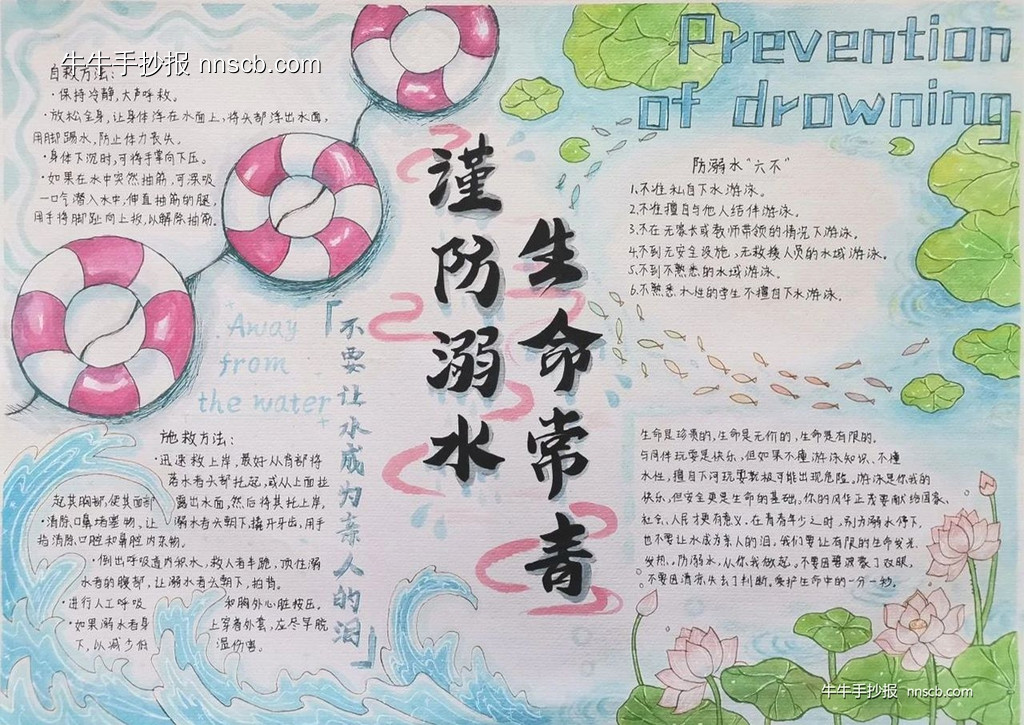 牛牛手抄报 nnscb.com
自救方法:
·保持冷静,大声呼救。
·放松全身,让身体浮在水面上,将头部浮出水面,
用脚踢水,防止体力丧失。
·身体下沉时,可将手掌向下压。
·如果在水中突然抽筋,可深吸
一口气潜入水中,伸直抽筋的腿,
用手将脚趾向上扳,以解除抽筋。
Away
from
the water
「不要让水成为亲人的泪」
谨防溺水
生命常青
Prevention
of drowning
防溺水"六不"
1.不准私自下水游泳。
2.不准擅自与他人结伴游泳。
3.不在无家长或教师带领的情况下游泳。
4.不到无安全设施,无救援人员的水域游泳。
5.不到不熟悉的水域游泳。
6.不熟悉水性的学生不擅自下水游泳。
施救方法:
·迅速救上岸,最好从背部将
落水者头部托起,或从上面拉
起其胸部,使其面部 露出水面,然后将其托上岸,
·清除口鼻堵塞物,让 溺水者头朝下,撬开牙齿,用手
指清除口腔和鼻腔内杂物。
·倒出呼吸道内积水,救人者半跪,顶住溺
水者的腹部,让溺水者头朝下,拍背。
·进行人工呼吸 和胸外心脏按压。
·如果溺水者身 上穿着外套,应尽早脱
下,以减少低 温伤害。
生命是珍贵的,生命是无价的,生命是有限的。
与同伴玩耍是快乐,但如果不懂游泳知识、不懂
水性,擅自下河玩耍就极可能出现危险。游泳是你我的
快乐,但安全更是生命的基础,你的风华正茂要献给国家、
社会、人民才更有意义。在青春年少之时,别为溺水停下,
也不要让水成为亲人的泪,我们要让有限的生命发光、
发热,防溺水,从你我做起。不要因碧波蒙了双眼,
不要因清凉失去了判断,爱护生命中的一分一秒。
牛牛手抄报 nnscb.com